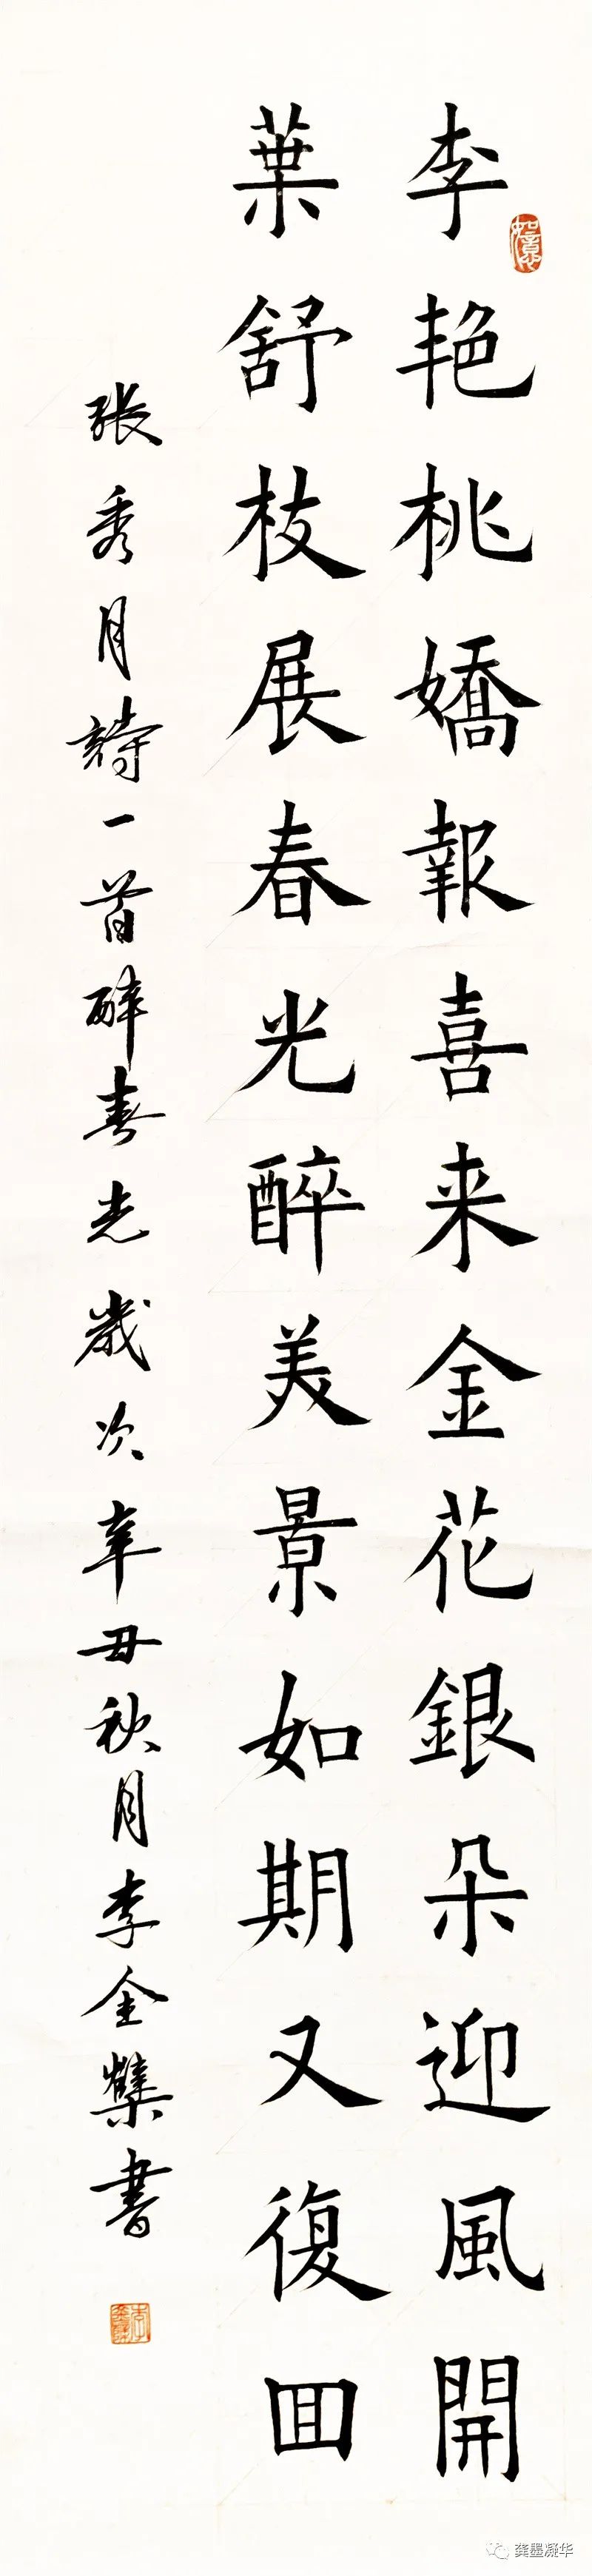 李艳桃嬌報喜来金花銀朵迎風開
葉舒枝展春光醉美景如期又復回
張秀月詩一首醉春光歲次辛丑秋月李金龑書
如意
龚墨凝华